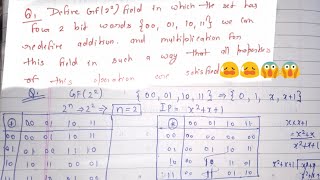 Q1 Define GF(2ⁿ) field in which the set has
four 2 bit words {00, 01, 10, 11} we can
redefine addition. and multiplication for
this field in such a way that all properties
of this operation are satisfied
Q2: GF(2ⁿ) {00, 01, 10, 11} ⇒ {0, 1, x, x+1}
2ⁿ → 2² ⇒ n=2 IP = x²+x+1
⊕ 00 01 10 11
00 00 01 10 11
01 01 00 11 10
10 10 11 00 01
00 01 10 11
00 00 00 00 00
01 00 01 10 11
x × x+1
= x²+x
x²+x+1